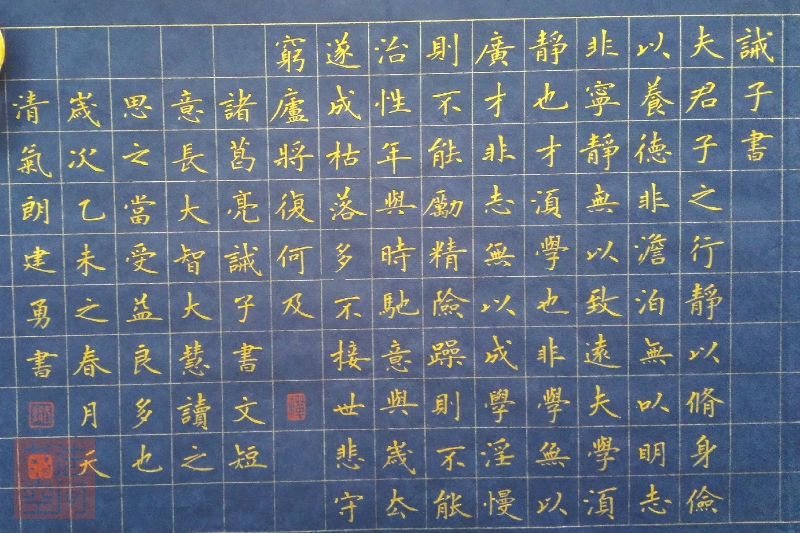 誡子書
夫君子之行靜以脩身儉
以養德非澹泊無以明志
非寧靜無以致遠夫學須
靜也才須學也非學無以
廣才非志無以成學淫慢
則不能勵精險躁則不能
治性年與時馳意與歲去
遂成枯落多不接世悲守
窮廬將復何及
諸葛亮誡子書文短
意長大智大慧讀之
思之當受益良多也
歲次乙未之春月天
清氣朗建勇書